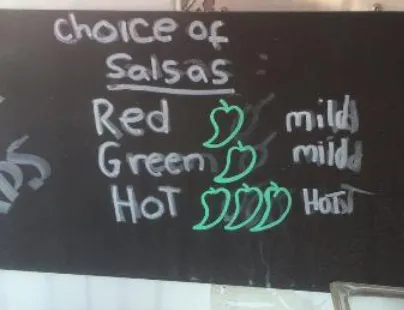 choice of
Salsas
Red mild
Green mild
HOT HOT